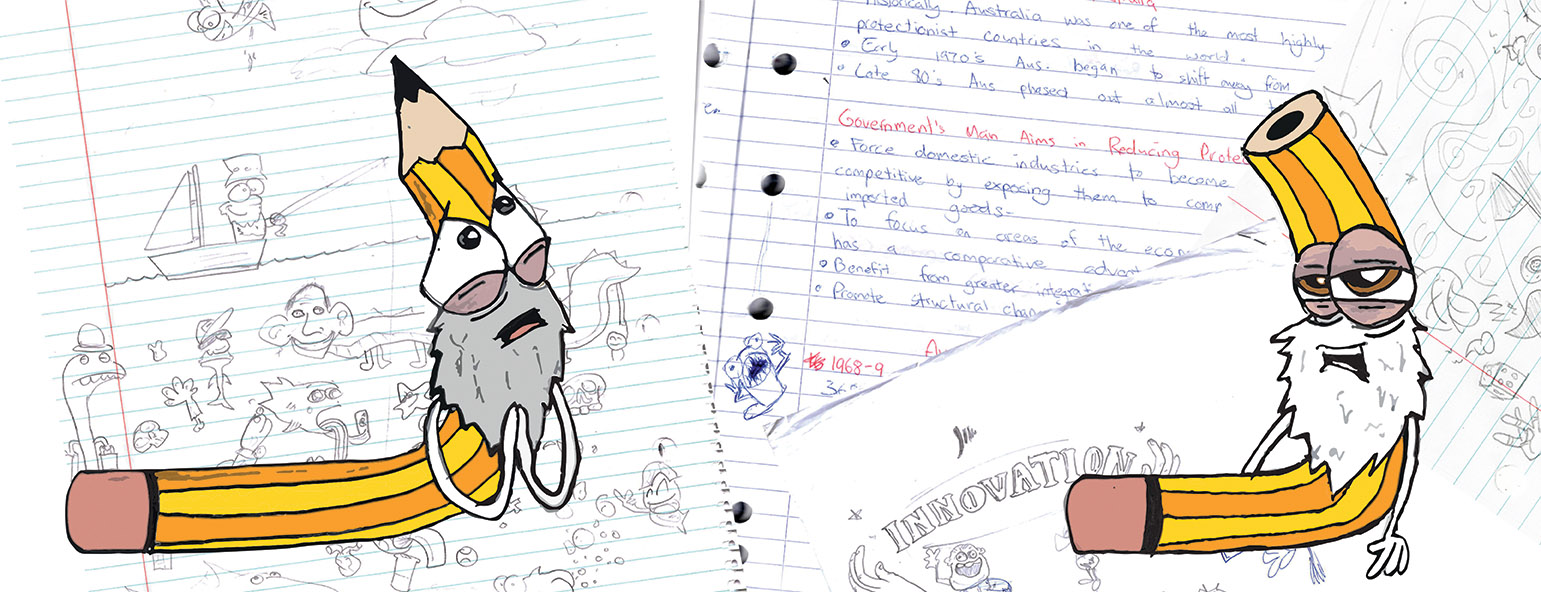 Historically Australia was one of the most highly
protectionist countries in the world.
• Early 1970's Aus. began to shift away from
• Late 80's Aus phased out almost all
Government's Main Aims in Reducing Protec
• Force domestic industries to become
competitive by exposing them to comp
imported goods-
• To focus on areas of the econ
has a comparative advant
• Benefit from greater integrat
• Promote structural chan
1968-9
INNOVATION